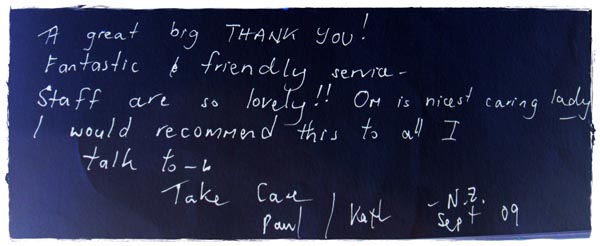 A great big THANK YOU!
Fantastic & friendly service -
Staff are so lovely!! Om is nicest caring lady
I would recommend this to all I
talk to -
Take Care
Paul / Kath - N.Z.
Sept 09